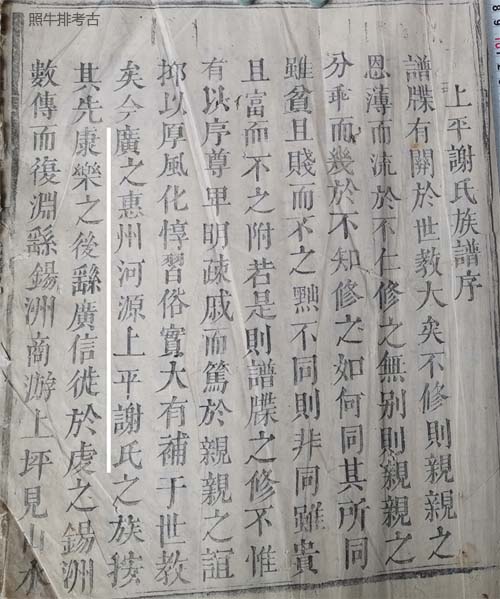 照牛排考古
上平謝氏族譜序
譜牒有關於世教大矣不修則親親之
恩薄而流於不仁修之無别則親親之
分乖而幾於不知修之如何同其所同
雖貧且賤而不之黜不同則非同雖貴
且富而不之附若是則譜牒之修不惟
有以序尊卑明疎戚而篤於親親之誼
抑以厚風化惇習俗實大有補于世教
矣今廣之惠州河源上平謝氏之族按
其先康樂之後繇廣信徙於虔之錫洲
數傳而復淵繇錫洲商游上坪見山水
8
9